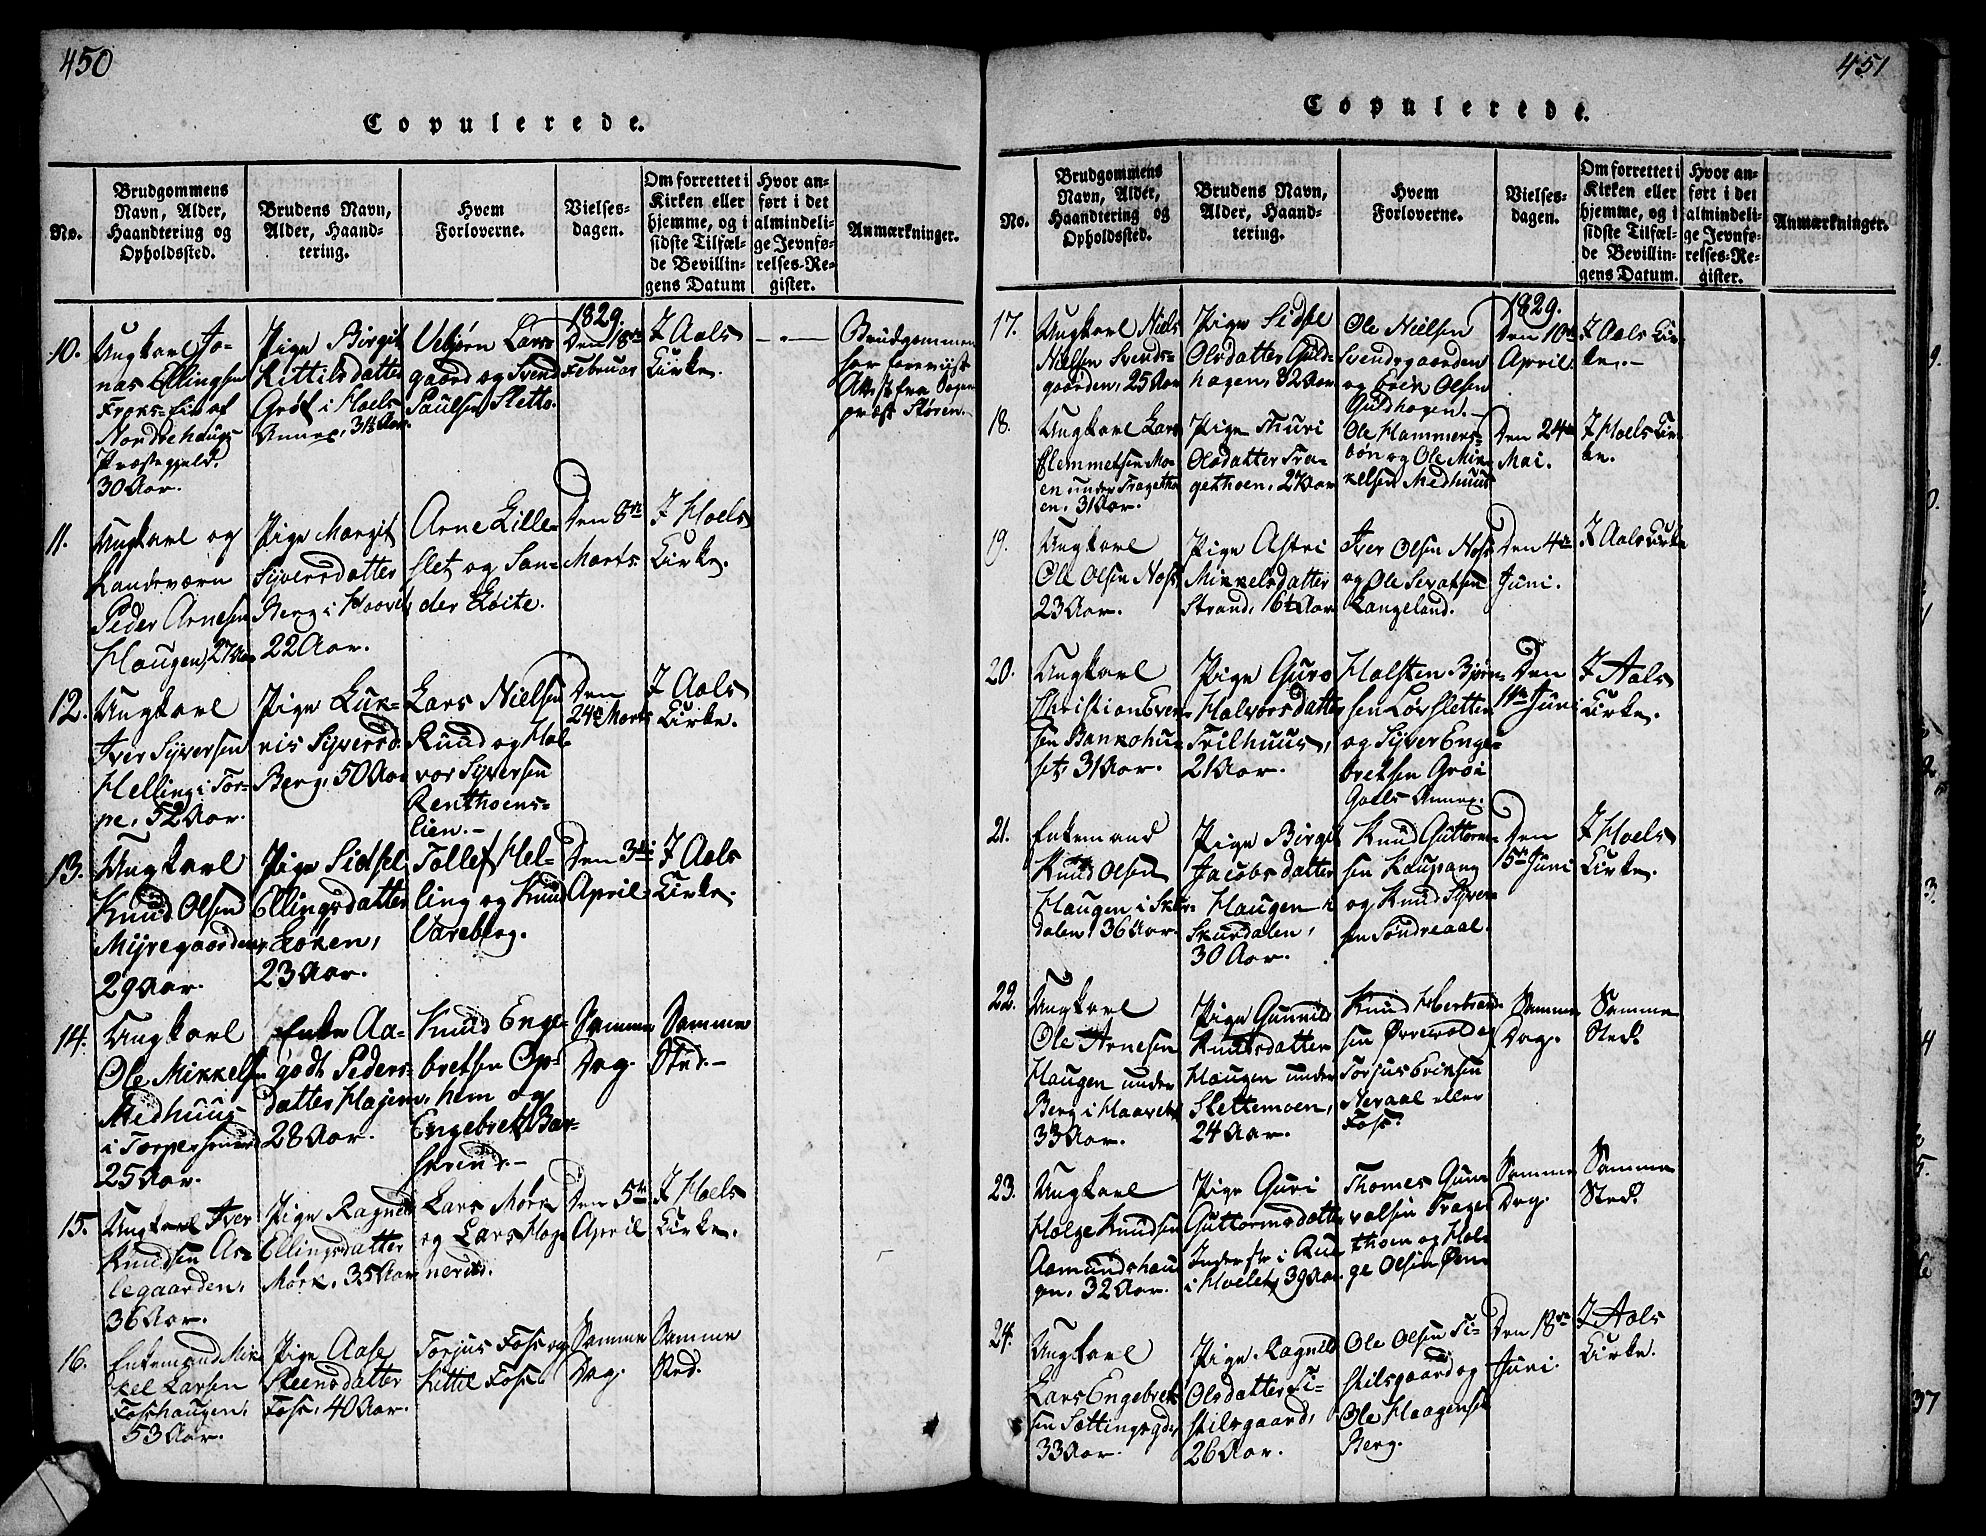 450
Copulerede.
No.
Brudgommens
Navn, Alder,
Haandtering og
Opholdssted.
Brudens Navn,
Alder, Haand-
tering.
Hvem
Forloverne.
Vielses-
dagen.
Om forrettet i
Kirken eller
hjemme, og i
sidste Tilfæl-
de Bevillin-
gens Datum
Hvor an-
ført i det
almindeli-
ge Jevnfø-
relses-Re-
gister.
Anmærkninger.
1829.
10.
Ungkarl Jo-
nas Ellingsen
af
Nordrehaugs
Præstegjeld.
30 Aar.
Pige Birgit
Kittilsdatter
Grøt i Hoels
Annex, 31½ Aar.
Vebjørn Lars-
gaard og Svend
Paulsen Sletto.
Den 18de
Februar
I Aals
Kirke.
Brudgommen
har foreviist
Attest fra Sogne-
præst Støren.
11.
Ungkarl og
Landeværn
Peder Arnesen
Haugen, 27 Aar
Pige Margit
Syversdatter
Berg i Haavet,
22 Aar.
Arne Lille-
slet og San-
der Løite.
Den 8de
Marts
I Hoels
Kirke.
12.
Ungkarl
Iver Syversen
Helling i Tor-
pe, 52 Aar.
Pige Luk-
ris Syversd.
Berg, 50 Aar
Lars Nielsen
Ruud og Hal-
vor Syversen
Renthoens-
lien.-
Den
24de Marts
I Aals
Kirke.
13.
Ungkarl
Knud Olsen
Myregaarden,
29 Aar.
Pige Sidsel
Ellingsdatter
Løken,
23 Aar.
Tollef Hel-
ling og Knud
Vareberg.
Den 3die
April
I Aals
Kirke.
14.
Ungkarl
Ole Mikkelsen
Medhuus
i Torpe
25 Aar.
Enke Aa-
godt Peders-
datter Hajem,
28 Aar.
Knud Enge-
bretsen Op-
hem og
Engebret Bar-
skrud.-
Samme
Dag.
Samme
Sted.-
15.
Ungkarl Iver
Knudsen As-
legaarden,
36 Aar.
Pige Ragnild
Ellingsdatter
Mørk, 35 Aar
Lars Mørk
og Lars Hag-
nerud.
Den 5te
April
I Hoels
Kirke.
16.
Enkemand Mik-
kel Larsen
Foshaugen,
53 Aar.
Pige Aase
Steensdatter
Foss, 40 Aar.
Torjus Foss og
Kittil Foss
Samme
Dag.
Samme
Sted.
451
Copulerede.
No.
Brudgommens
Navn, Alder,
Haandtering og
Opholdssted.
Brudens Navn,
Alder, Haand-
tering.
Hvem
Forloverne.
Vielses-
dagen.
Om forrettet i
Kirken eller
hjemme, og i
sidste Tilfæl-
de Bevillin-
gens Datum.
Hvor an-
ført i det
almindeli-
ge Jevnfø-
relses-Re-
gister.
Anmærkninger.
1829.
17.
Ungkarl Niels
Nielsen Svends-
gaarden, 25 Aar
Pige Sidsel
Olsdatter Guld-
hagen, 32 Aar
Ole Nielsen
Svendsgaarden
og Erik Olsen
Guldhagen.-
Den 10de
April.
I Aals Kir-
ke.-
18.
Ungkarl Lars
Clemmetsen Mo-
en under Tragetho-
en, 31 Aar.
Pige Thuri
Olsdatter Tra-
gethoen, 27 Aar
Ole Hammers-
bøn og Ole Mik-
kelsen Medhuus
Den 24de
Mai.
I Hoels Kir-
ke.
19.
Ungkarl
Ole Olsen Noss
23 Aar.
Pige Astri
Mikkelsdatter
Strand, 16½ Aar
Iver Olsen Noss
og Ole Sevatsen
Langeland.
Den 4de
Juni.
I Aals Kirke
20.
Ungkarl
Christian Ever-
sen Bankohu-
set, 31 Aar.
Pige Guro
Halvorsdatter
Trilhuus,
21 Aar.
Halsten Bjørn-
sen Løvsletten
og Syver Enge-
bretsen Grøi
Goels Annex.
Den
Juni
I Aals
Kirke.
21.
Enkemand
Knud Olsen
Haugen i Skur-
dalen, 36 Aar.
Pige Birgit
Jacobsdatter
Haugen i
Skurdalen,
30 Aar.
Knud Guttorm-
sen Kaupang
og Knud Syver-
sen Søndreaal.
Den
15de Juni
I Hoels
Kirke.
22.
Ungkarl
Ole Arnesen
Haugen under
Berg i Haavet,
33 Aar.
Pige Gunnild
Knudsdatter
Haugen under
Slettemoen,
24 Aar.
Knud Herbrand-
sen Øvrevolde,
Torjus Eriksen
Neraal eller
Foss.
Samme
Dag.
Samme
Sted.
23.
Ungkarl
Holge Knudsen
Aamundshau-
gen, 32 Aar.
Pige Guri
Guttormsdatter
Inderste i Rue
i Hoelet, 39 Aar.
Thomes Gun-
valsen Traget-
thoen og Hol-
ge Olsen Øen
Samme
Dag.
Samme
Sted.
24.
Ungkarl
Lars Engebret-
sen Sættingsgd,
33 Aar.
Pige Ragnild
Olsdatter Ti-
stilsgaard,
26 Aar.
Ole Olsen Ti-
stilsgaard og
Ole Haagensen
Berg.
Den 18de
Juni.
I Aals
Kirke.